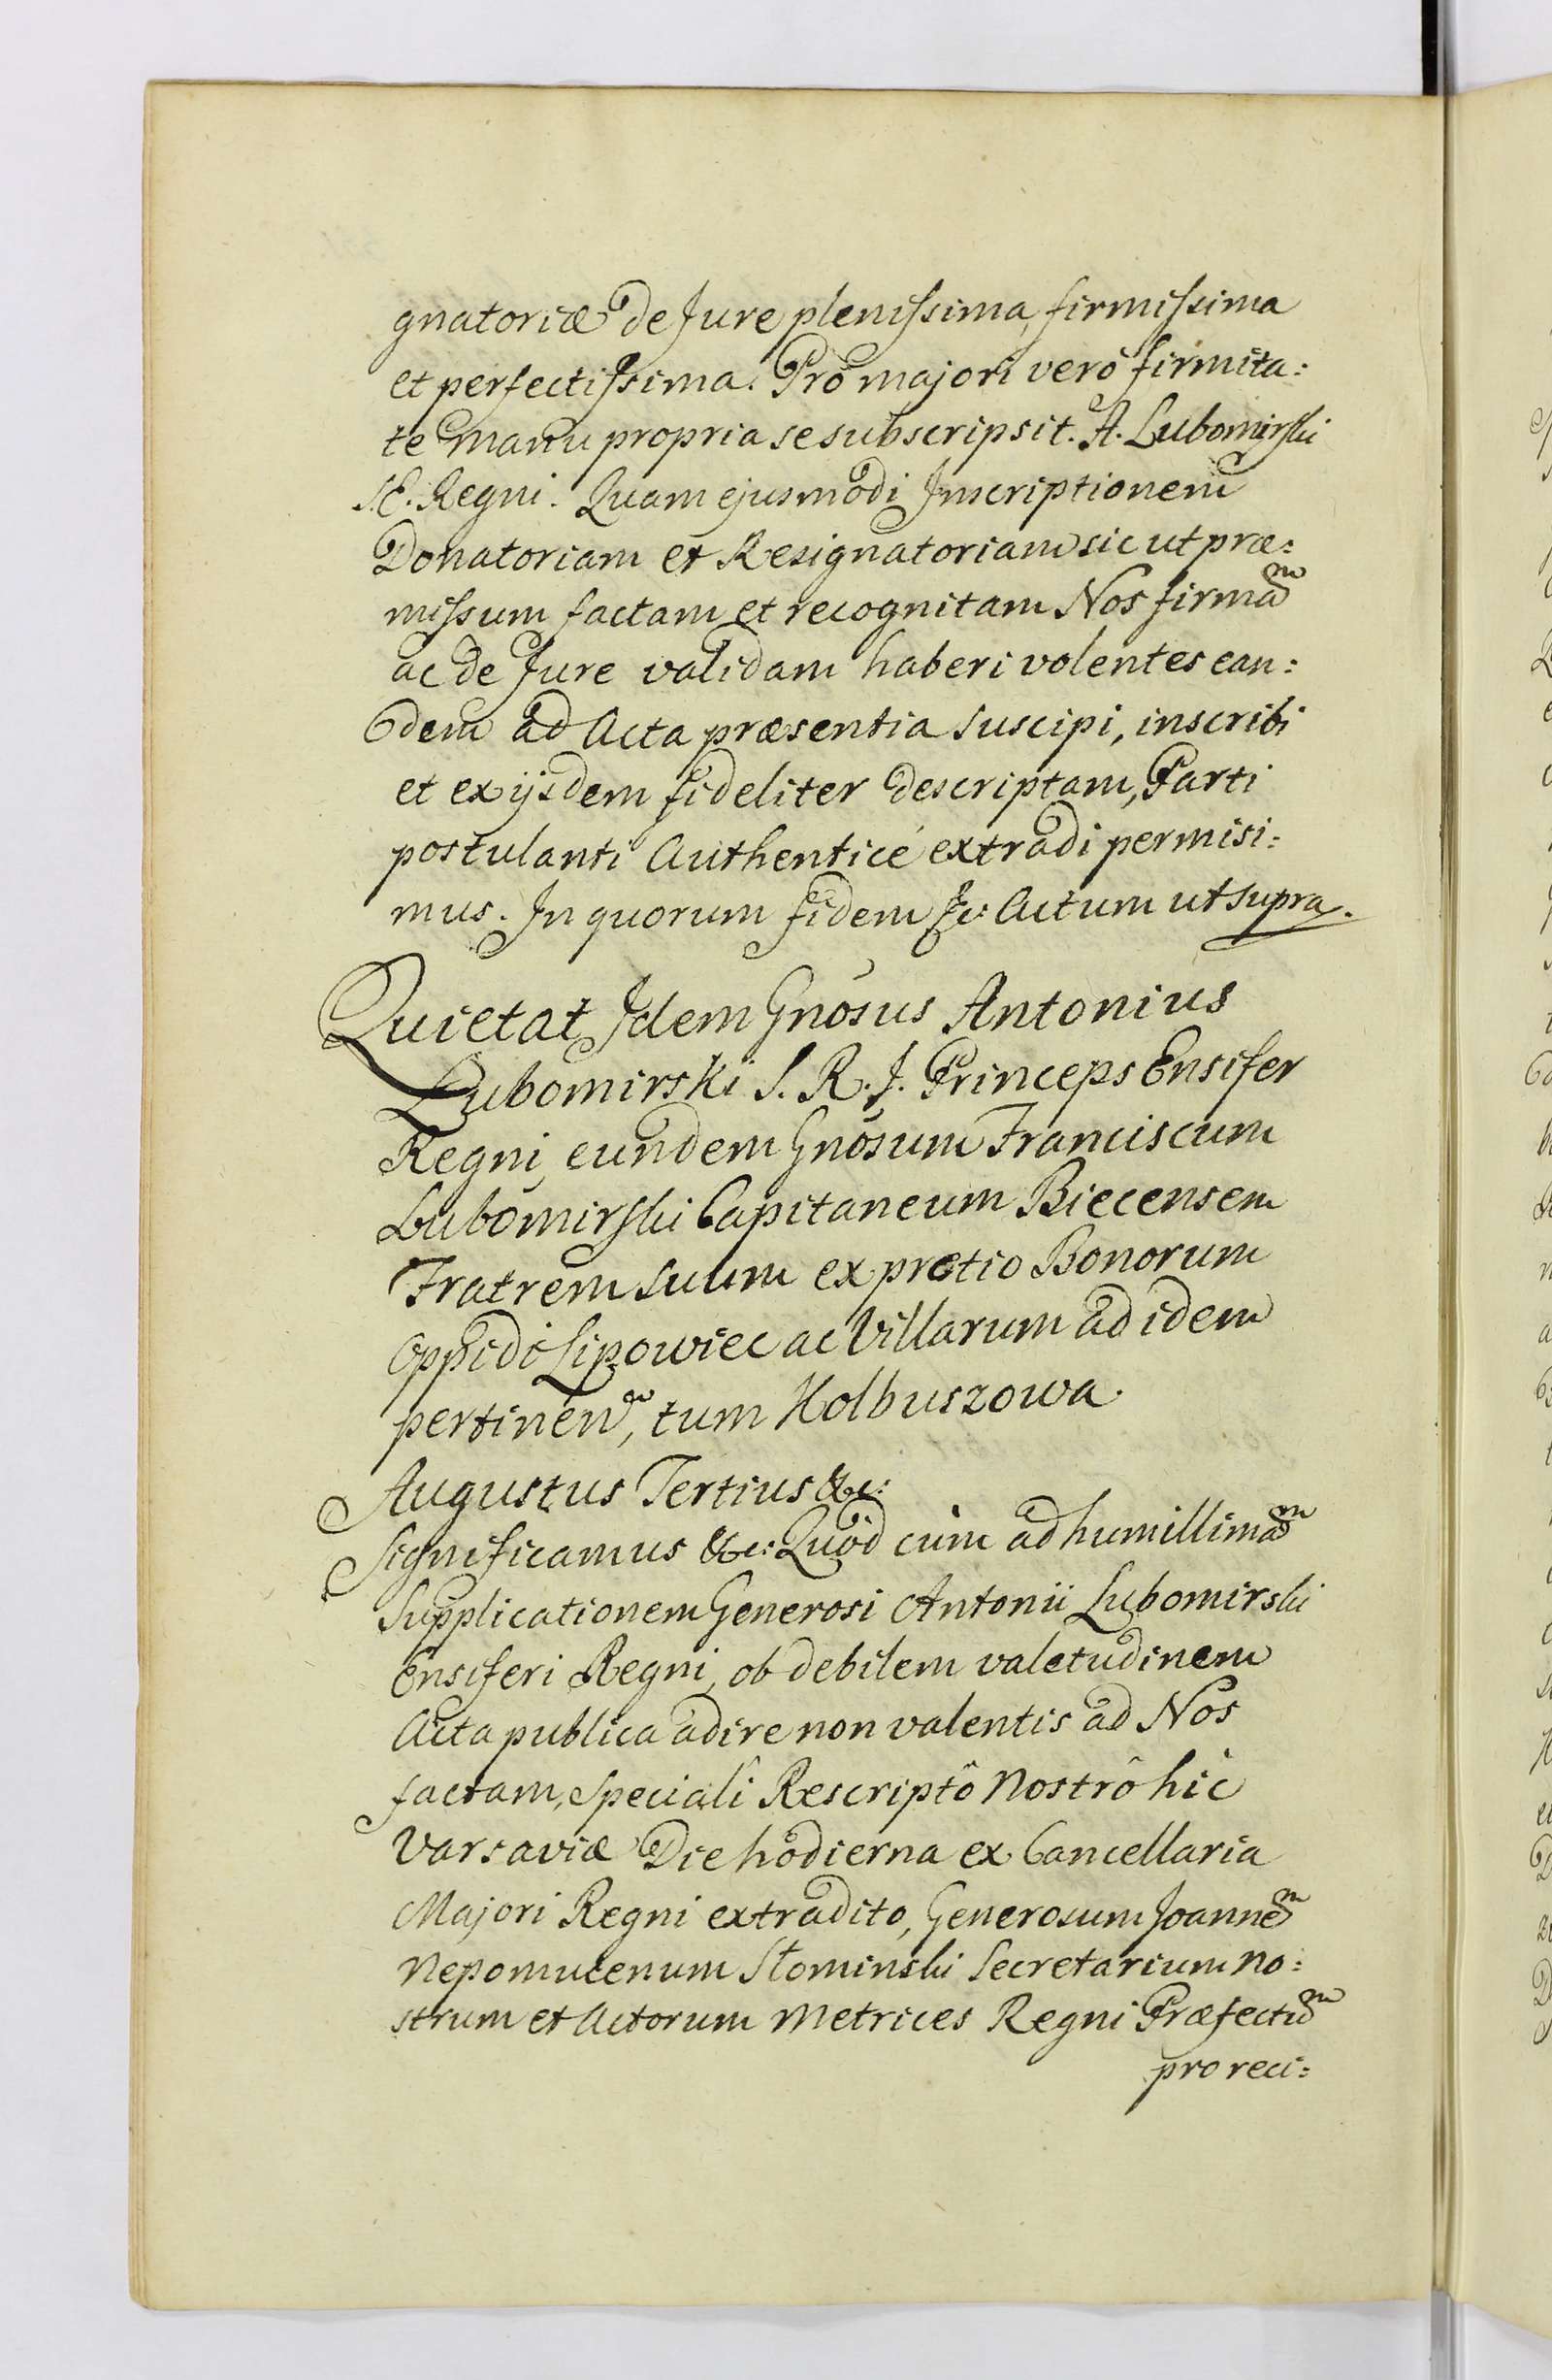 gnatoriæ de Jure plenissima, firmissima
et perfectissima. Pro majori verò firmita:
te manu propria se subscripsit. A. Lubomirski
M. Regni. Quam ejusmodi Inscriptionem
Donatoriam et Resignatoriam sic ut præ:
missum factam et recognitam Nos firmam
ac de Jure validam haberi volentes ean:
dem ad Acta præsentia suscipi, inscribi
et ex ijsdem fideliter descriptam, Parti
postulanti Authenticé extradi permisi:
mus. In quorum fidem &c: Actum ut supra.
Quietat Idem Gnosus Antonius
Lubomirski S. R. J. Princeps Ensifer
Regni, eundem Gnosum Franciscum
Lubomirski Capitaneum Biecensem
Fratrem suum ex pretio Bonorum
Oppidi Lipowiec ac Villarum ad idem
pertinen, tum Kolbuszowa.
Augustus Tertius &c:
Significamus &c: Quòd cùm ad humillimam
Supplicationem Generosi Antonii Lubomirski
Ensiferi Regni, ob debilem valetudinem
Acta publica adire non valentis ad Nos
factam, speciali Rescriptô Nostrô hic
Varsaviæ Die hodierna ex Cancellaria
Majori Regni extradito, Generosum Joannem
Nepomucenum Słominski Secretarium No:
strum et Actorum Metrices Regni Præfectum
pro reci: